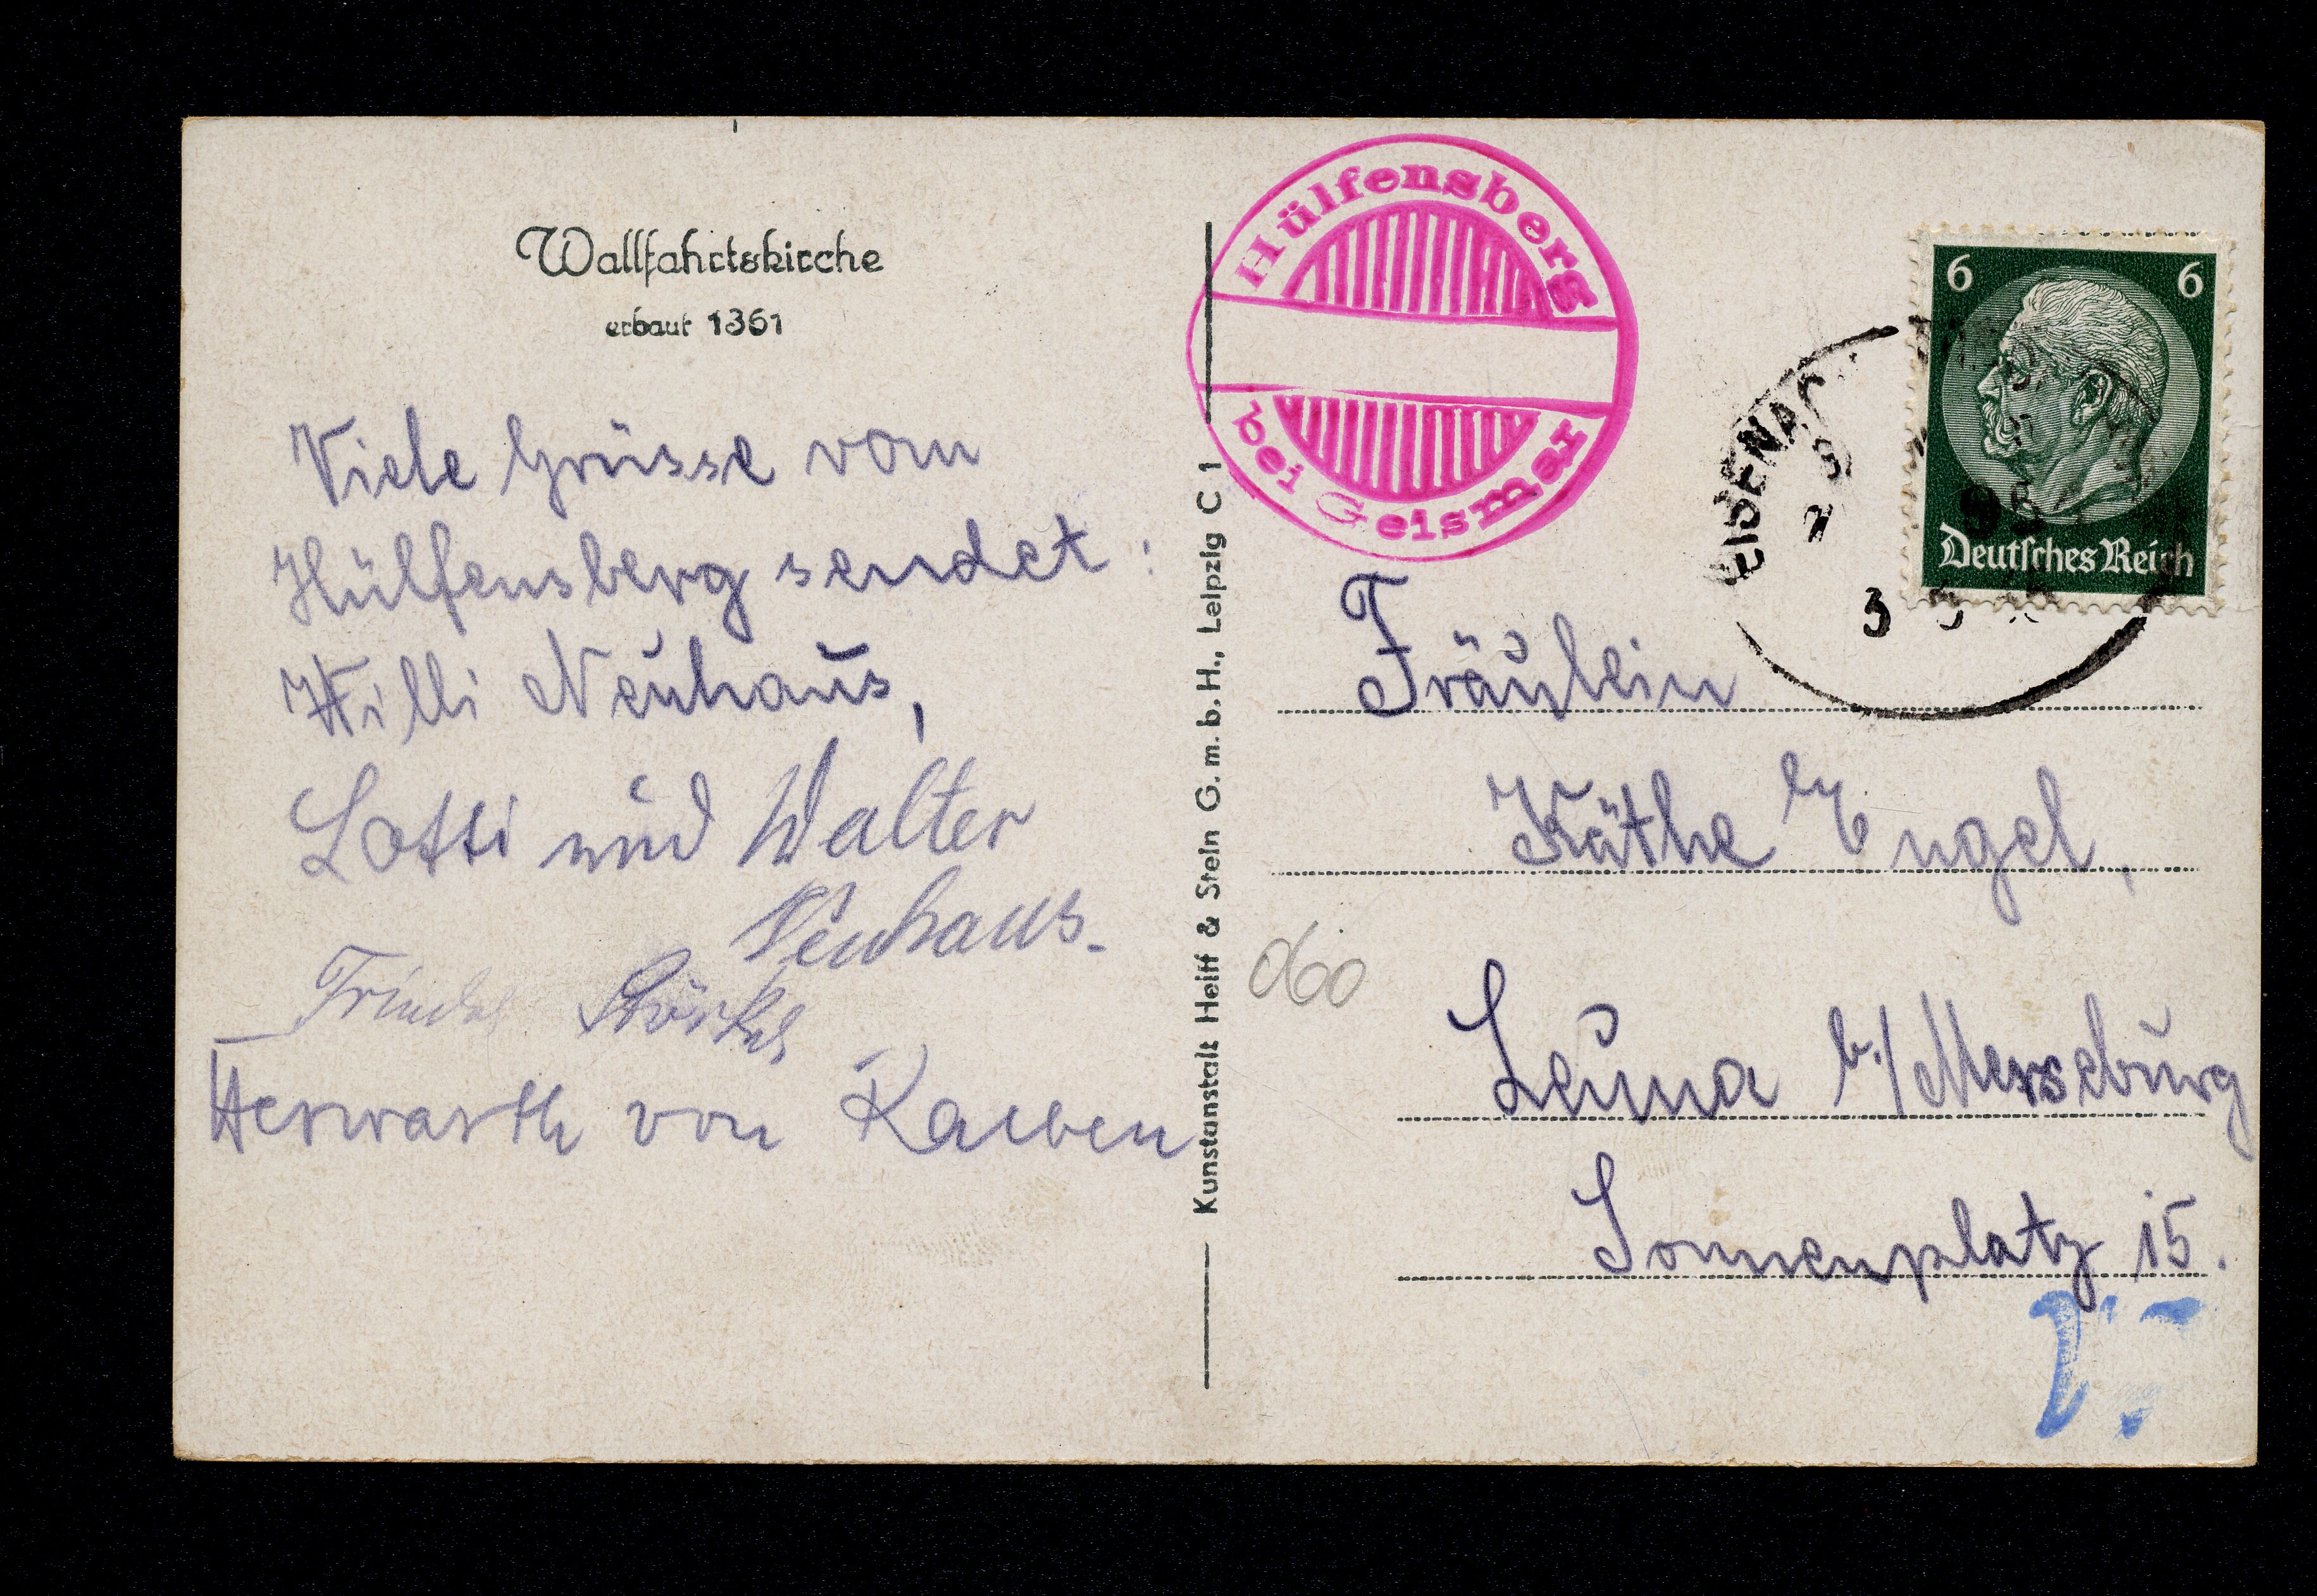 Wallfahrtskirche
erbaut 1361
Viele Grüsse vom
Hülfensberg sendet:
Willi Neuhaus,
Lotti und Walter
Neuhaus.
Herwarth von
Kunstanstalt Heiff & Stein G.m.b.H., Leipzig C 1
Hülfensberg
bei Geismar
EISENAC
6 6
Deutsches Reich
Fräulein
Käthe Engel,
Leuna b./Merseburg
Sonnenplatz 15.